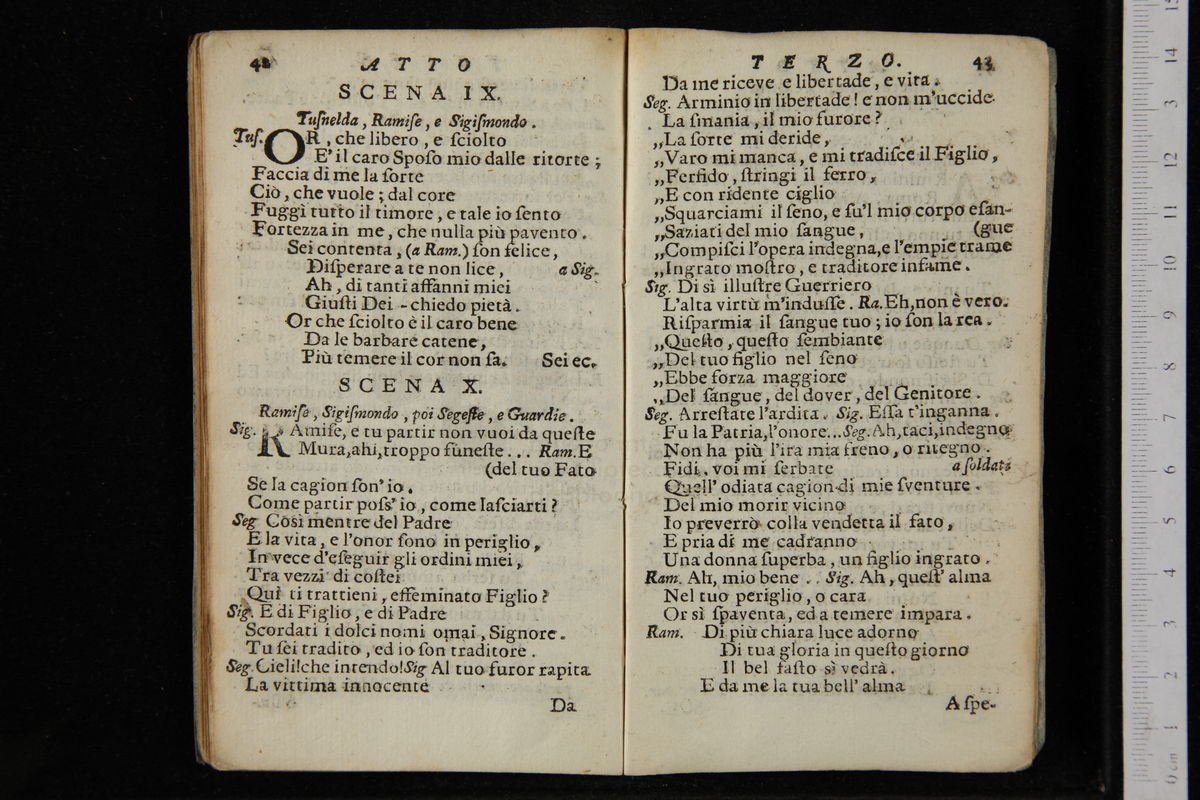 42 ATTO
SCENA IX.
Tuſnelda, Ramiſe, e Sigiſmondo.
Tuſ. OR, che libero, e ſciolto
E' il caro Spoſo mio dalle ritorte;
Faccia di me la ſorte
Ciò, che vuole; dal core
Fuggì tutto il timore, e tale io ſento
Fortezza in me, che nulla più pavento.
Sei contenta, (a Ram.) ſon felice,
Diſperare a te non lice, a Sig.
Ah, di tanti affanni miei
Giuſti Dei - chiedo pietà.
Or che ſciolto è il caro bene
Da le barbare catene,
Più temere il cor non ſa. Sei ec.
SCENA X.
Ramiſe, Sigiſmondo, poi Segeſte, e Guardie.
Sig. RAmiſe, e tu partir non vuoi da queſte
Mura, ahi, troppo funeſte... Ram. E
(del tuo Fato
Se la cagion ſon' io.
Come partir poſs' io, come laſciarti?
Seg Così mentre del Padre
E la vita, e l'onor ſono in periglio,
In vece d'eſeguir gli ordini miei,
Tra vezzi di coſtei
Quì ti trattieni, effeminato Figlio?
Sig. E di Figlio, e di Padre
Scordati i dolci nomi omai, Signore.
Tu ſei tradito, ed io ſon traditore.
Seg. Cieli! che intendo! Sig Al tuo furor rapita
La vittima innocente
Da
TERZO. 43
Da me riceve e libertade, e vita.
Seg. Arminio in libertade! e non m'uccide
La ſmania, il mio furore?
„La ſorte mi deride,
„Varo mi manca, e mi tradiſce il Figlio,
„Perfido, ſtringi il ferro,
„E con ridente ciglio
„Squarciami il ſeno, e ſu'l mio corpo eſan-
„Saziati del mio ſangue, (gue
„Compiſci l'opera indegna, e l'empie trame
„Ingrato moſtro, e traditore infame.
Sig. Di sì illuſtre Guerriero
L'alta virtù m'induſſe. Ra. Eh, non è vero.
Riſparmia il ſangue tuo; io ſon la rea.
„Queſto, queſto ſembiante
„Del tuo figlio nel ſeno
„Ebbe forza maggiore
„Del ſangue, del dover, del Genitore.
Seg. Arreſtate l'ardita. Sig. Eſſa t'inganna.
Fu la Patria, l'onore... Seg. Ah, taci, indegno
Non ha più l'ira mia freno, o ritegno.
Fidi, voi mi ſerbate a ſoldati
Quell' odiata cagion di mie ſventure.
Del mio morir vicino
Io preverrò colla vendetta il fato,
E pria di me cadranno
Una donna ſuperba, un figlio ingrato.
Ram. Ah, mio bene .. Sig. Ah, queſt' alma
Nel tuo periglio, o cara
Or sì ſpaventa, ed a temere impara.
Ram. Di più chiara luce adorno
Di tua gloria in queſto giorno
Il bel faſto sì vedrà.
E da me la tua bell' alma
A ſpe-
0 cm 1 2 3 4 5 6 7 8 9 10 11 12 13 14 15